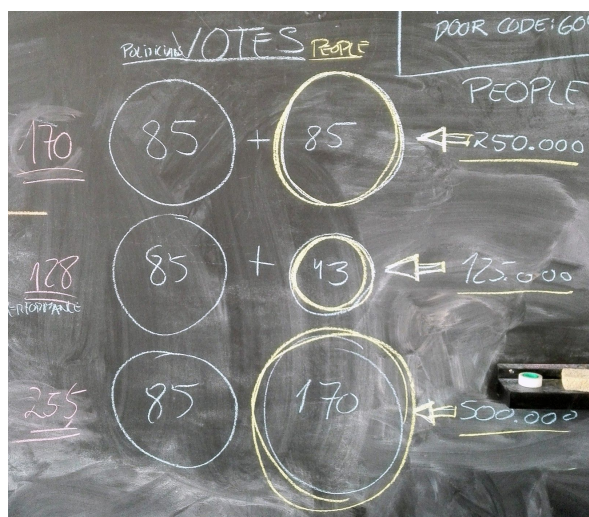 DOOR CODE: 60
POLITICIANS VOTES PEOPLE
PEOPLE
170 85 + 85 250.000
128 85 + 43 125.000
ERFORMANCE
255 85 170 500.000